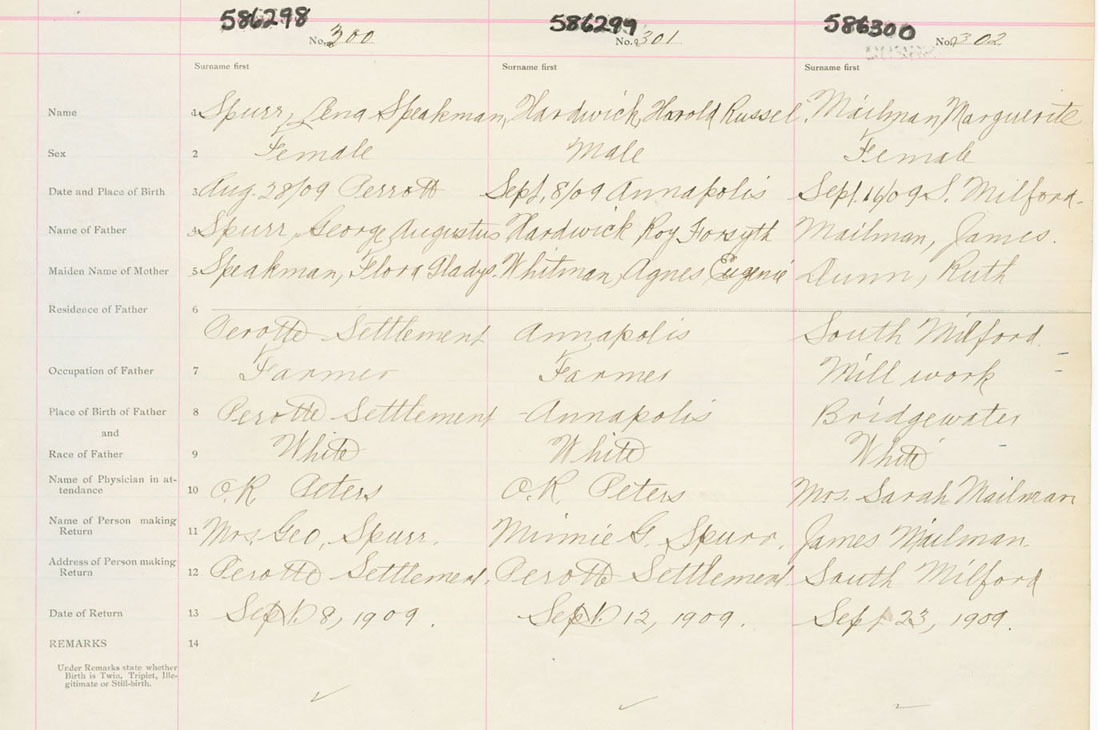 586298 586299 586300
No. 300 No. 301 No. 302
Surname first Surname first Surname first
Name 1 Spurr, Lena Speakman, Hardwick, Harold Russel. Mailman, Marguerite
Sex 2 Female Male Female
Date and Place of Birth 3 Aug. 28/09 Perrott Sept. 8/09 Annapolis Sept. 16/09 S. Milford.
Name of Father 4 Spurr, George Augustus Hardwick Roy Forsyth Mailman, James.
Maiden Name of Mother 5 Speakman, Flora Gladys. Whitman, Agnes Eugenie Dunn, Ruth
Residence of Father 6
Perotte Settlement Annapolis South Milford.
Occupation of Father 7 Farmer Farmer Mill work
Place of Birth of Father 8 Perotte Settlement Annapolis Bridgewater
and
Race of Father 9 White White White
Name of Physician in at-
tendance 10 O.R. Peters O.R. Peters Mrs. Sarah Mailman
Name of Person making
Return 11 Mrs. Geo. Spurr. Minnie G. Spurr. James Mailman.
Address of Person making
Return 12 Perotte Settlement. Perotte Settlement South Milford
Date of Return 13 Sept. 8, 1909. Sept. 12, 1909. Sept. 23, 1909.
REMARKS 14
Under Remarks state whether
Birth is Twin, Triplet, Ille-
gitimate or Still-birth.